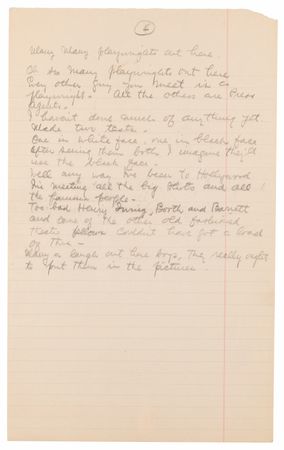 4
Many Many playwrights out here.
Oh so many playwrights out here
Every other guy you meet is a
playwright. All the others are Press
Agents.
I havent done much of anything yet
Made two tests.
One in white face, one in black face
After seeing them both, I imagine they'll
use the black face.
Well any way Ive been to Hollywood
Im meeting all the big shots and all
the famous people.
Too bad Henry Irving, Booth, and Barrett
and some of the other old fashioned
fellows couldnt have got a load
of this -
Many a laugh out here boys, They really ought
to put them in the pictures.